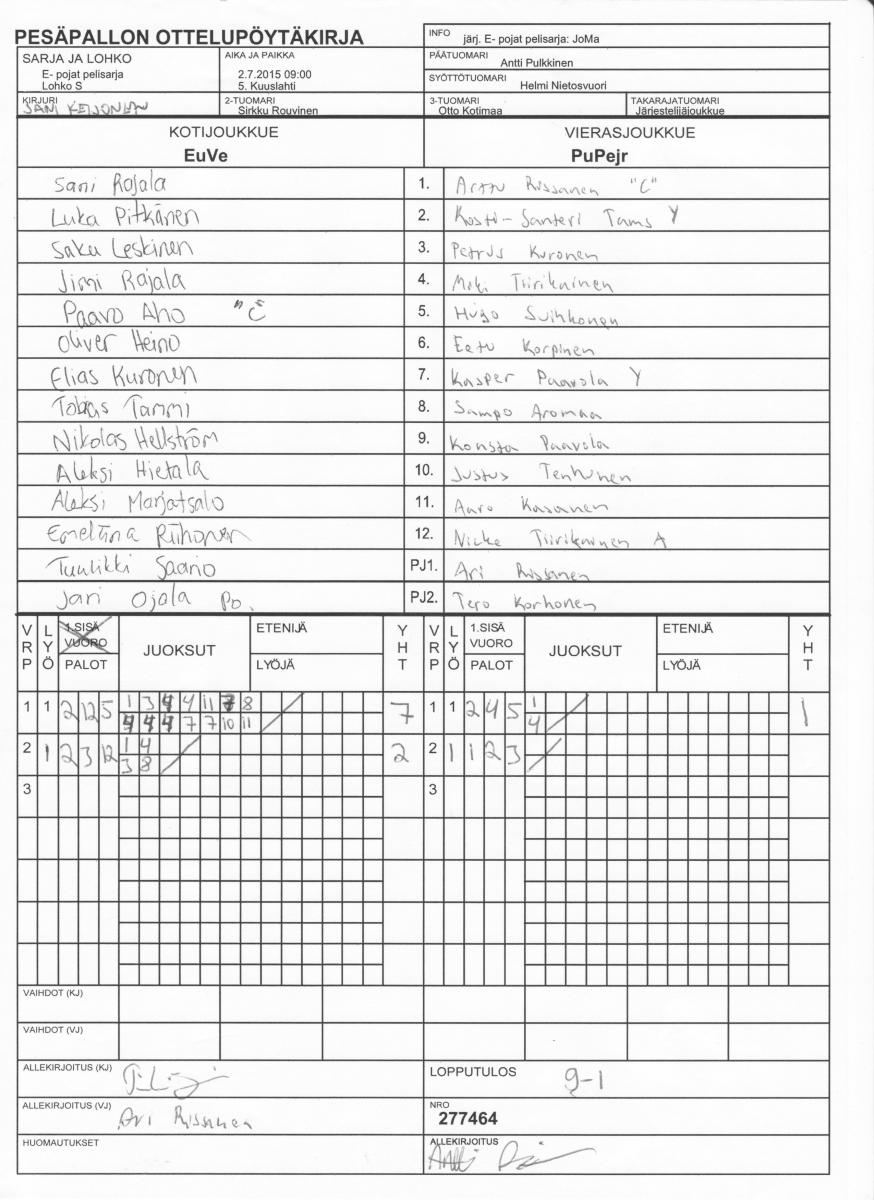 PESÄPALLON OTTELUPÖYTÄKIRJA
INFO järj. E- pojat pelisarja: JoMa
SARJA JA LOHKO
E- pojat pelisarja
Lohko S
AIKA JA PAIKKA
2.7.2015 09:00
5. Kuuslahti
PÄÄTUOMARI
Antti Pulkkinen
SYÖTTÖTUOMARI
Helmi Nietosvuori
KIRJURI
JANI KEIJONEN
2-TUOMARI
Sirkku Rouvinen
3-TUOMARI
Otto Kotimaa
TAKARAJATUOMARI
Järjestelijäjoukkue
KOTIJOUKKUE
EuVe
VIERASJOUKKUE
PuPejr
Sani Rajala 1. Arttu Rissanen "C"
Luka Pitkänen 2. Kosti-Santeri Tams Y
Saku Leskinen 3. Petrus Kuronen
Jimi Rajala 4. Miki Tiirikainen
Paavo Aho "C" 5. Hugo Suihkonen
Oliver Heino 6. Eetu Korpinen
Elias Kuronen 7. Kasper Paavola Y
Tobias Tammi 8. Sampo Aromaa
Nikolas Hellström 9. Konsta Paavola
Aleksi Hietala 10. Justus Tenhunen
Aleksi Marjatsalo 11. Aaro Kasanen
Emeliina Riihonen 12. Nicke Tiirikainen A
Tuulikki Saario PJ1. Ari Rissanen
Jari Ojala Po. PJ2. Tero Korhonen
VRP LYÖ 1.SISÄ VUORO PALOT JUOKSUT ETENIJÄ LYÖJÄ YHT VRP LYÖ 1.SISÄ VUORO PALOT JUOKSUT ETENIJÄ LYÖJÄ YHT
1 1 2 12 5 1 3 4 4 11 7 8 7 1 1 2 4 5 1 1
4 4 4 7 7 10 11 4
2 1 2 3 12 1 4 2 2 1 1 2 3
3 8
3 3
VAIHDOT (KJ)
VAIHDOT (VJ)
ALLEKIRJOITUS (KJ)
LOPPUTULOS 9-1
ALLEKIRJOITUS (VJ) Ari Rissanen
NRO
277464
HUOMAUTUKSET
ALLEKIRJOITUS
Antti